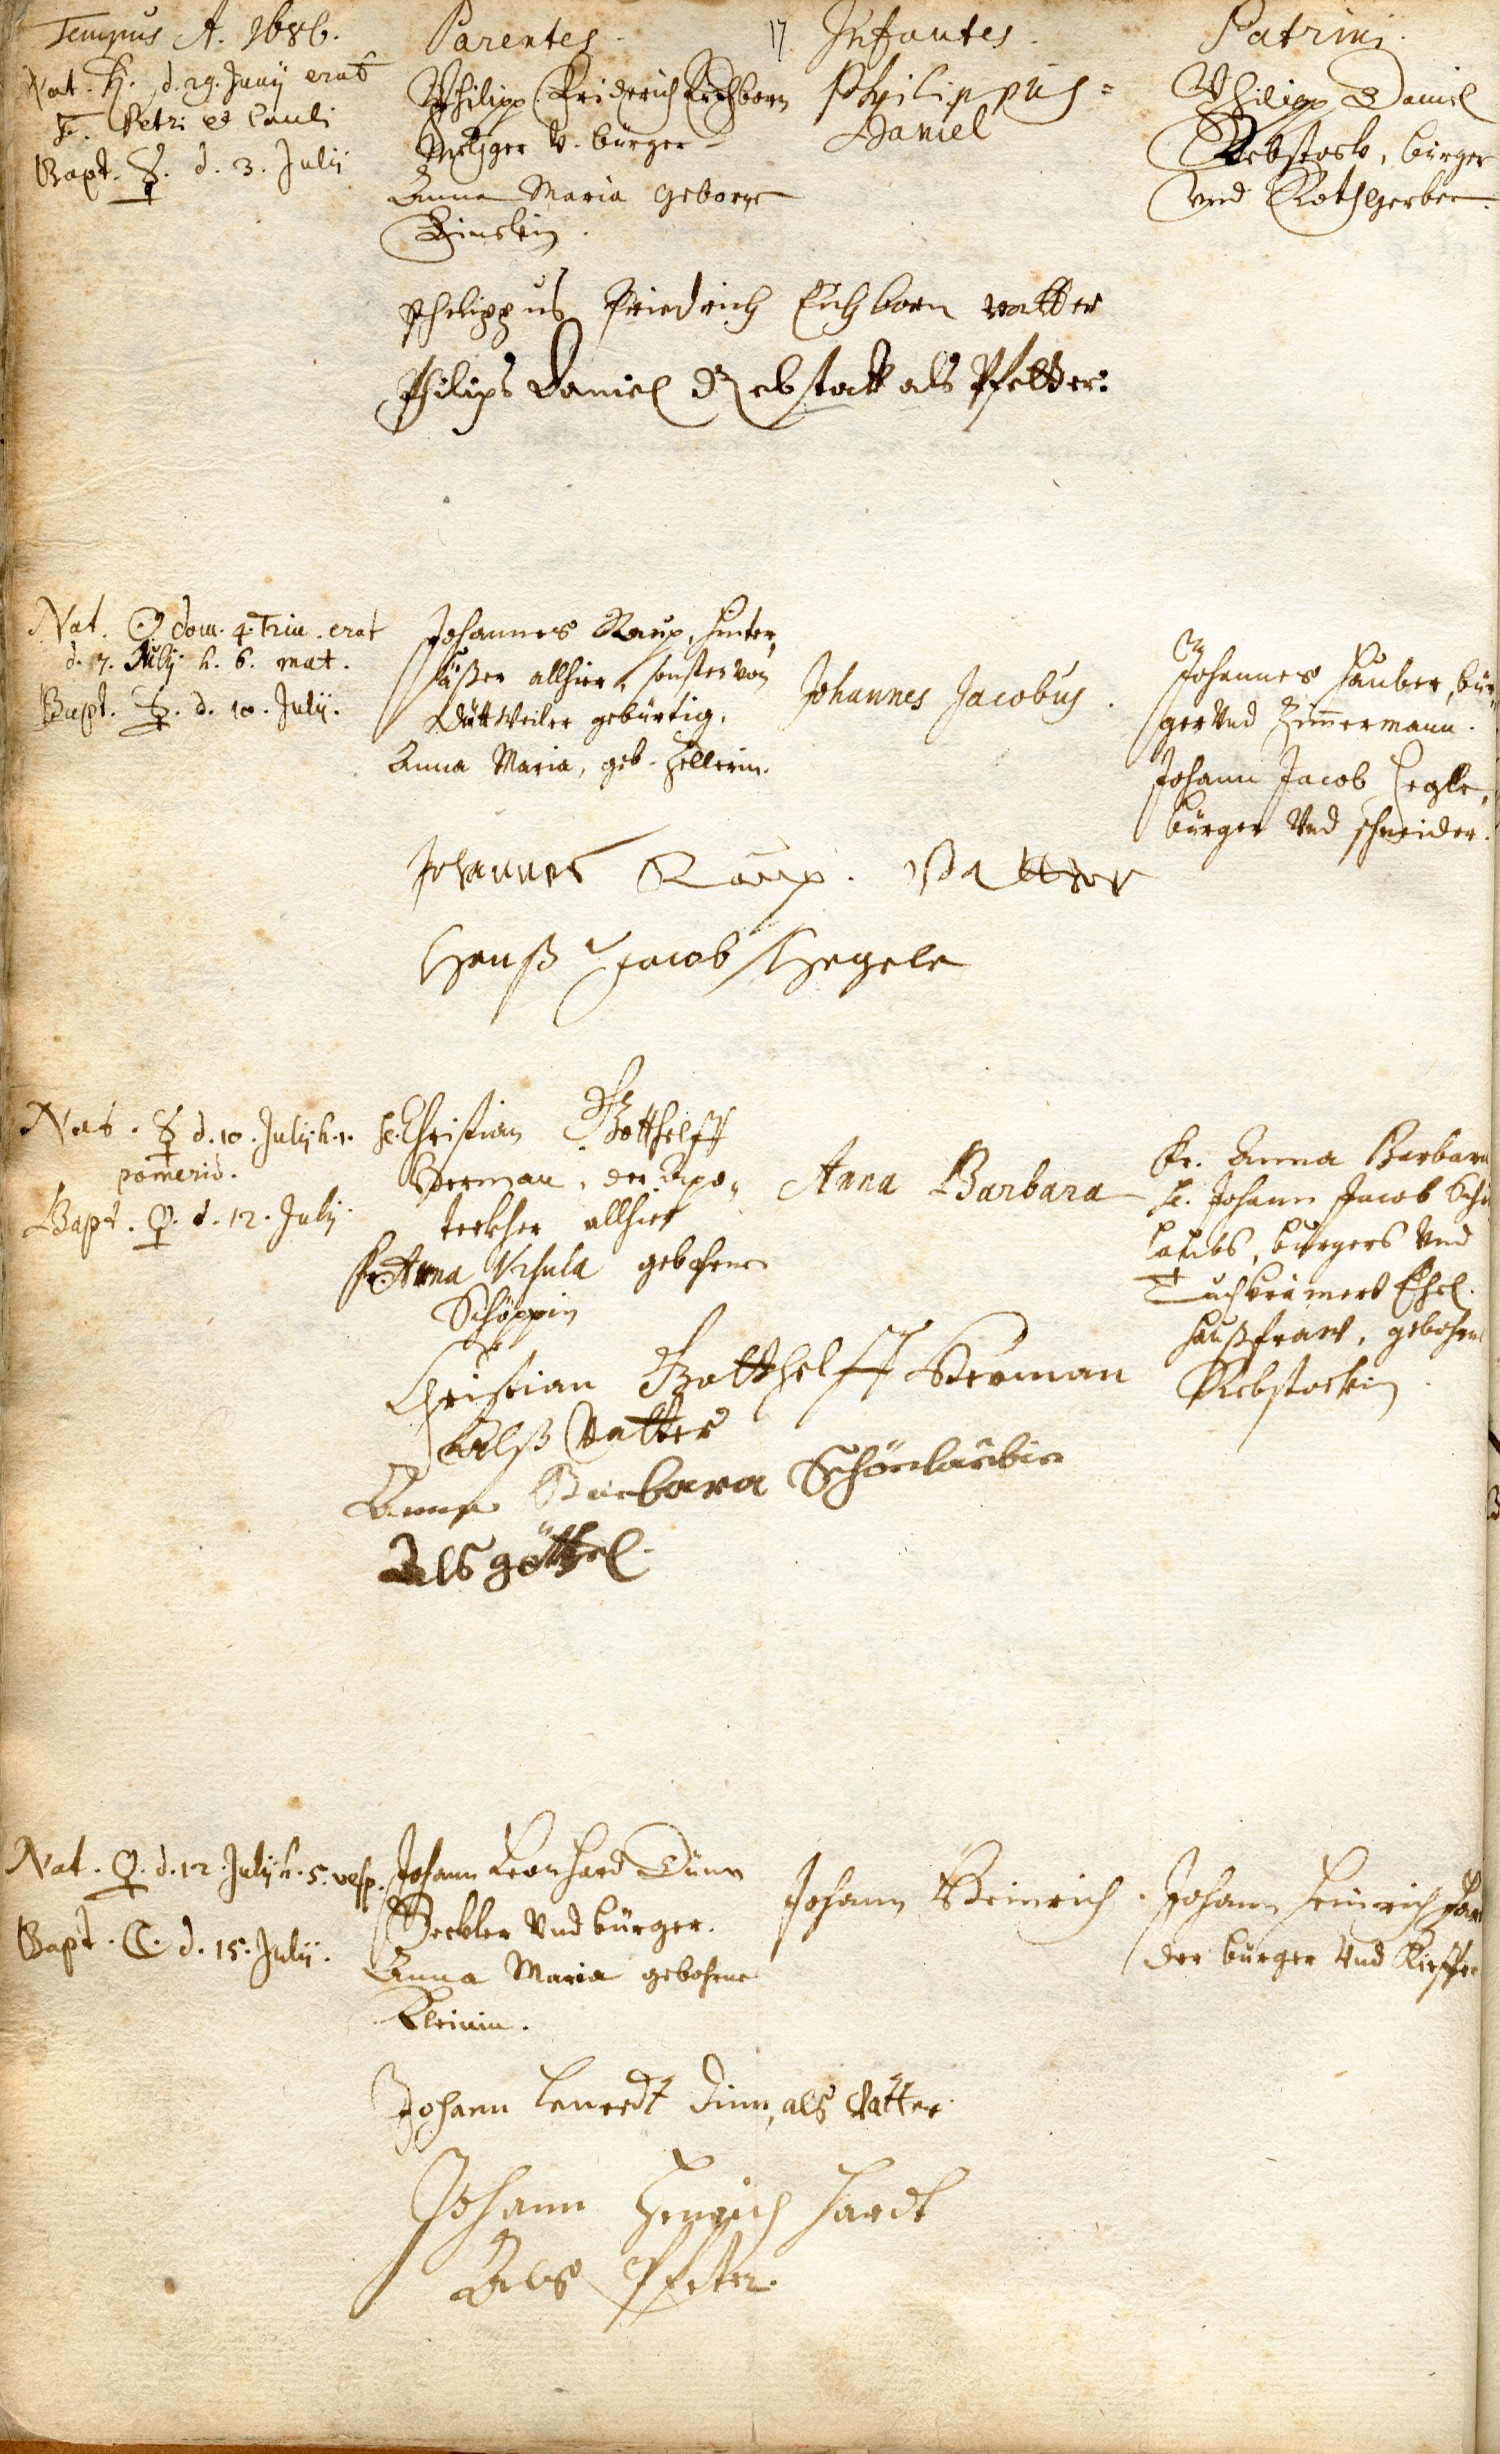 Tempus A. 1686.
Parentes.
17
Infantes.
Patrini.
Nat. ♄. d. 29. Junij erat
F. Petri et Pauli
Bapt. ☿. d. 3. Julij
Philipp Friderich Eichborn
Metzger v. bürger
Anna Maria geborne
Philippus =
Daniel
Philipp Daniel
Rebstock, bürger
und Rothgerber.
Philippus Friedrich Eichborn vatter
Philips Daniel Rebstock als Pfetter:
Nat. ☉ dom. 4. Trin. erat
d. 7. Julij h. 6. mat.
Bapt. ☿. d. 10. Julij.
Johannes Raup, hinter,
säßer allhier, sonsten von
Düttweiler gebürtig,
Anna Maria, geb. Hellerin.
Johannes Jacobus.
Johannes Hauber, bür,
ger Und Zim̄ermann.
Johann Jacob Hegle,
bürger Und schneider.
Johannes Raup. Vatter
Hanß Jacob Hegele
Nat. ☿ d. 10. Julij. h. 1.
pomerid.
Bapt. ♀. d. 12. Julij.
H. Christian Gotthelff
Herman, der Apo,,
teckher allhier
Fr. Anna Ursula gebohrne
Schöppin
Anna Barbara
Fr. Anna Barbara
H. Johann Jacob Schö
laubs, burgers Und
Tuchkrämers Ehel.
haußfraw, gebohrne
Rebstockin.
Christian Gotthelff Herman
Alß Vatter
Anna Barbara Schönlaubin
Als göttel.
Nat. ♀. d. 12. Julij h. 5. vesp.
Bapt. ☾. d. 15. Julij.
Johann Leonhard Dünn
Seckler Und bürger.
Anna Maria gebohrne
Kleinin.
Johann Heinrich.
Johann Heinrich Har
der bürger Und Kieffer
Johann Lenerdt Dinn, als Vatter
Johann Henrich Hardt
Als Pfetter.